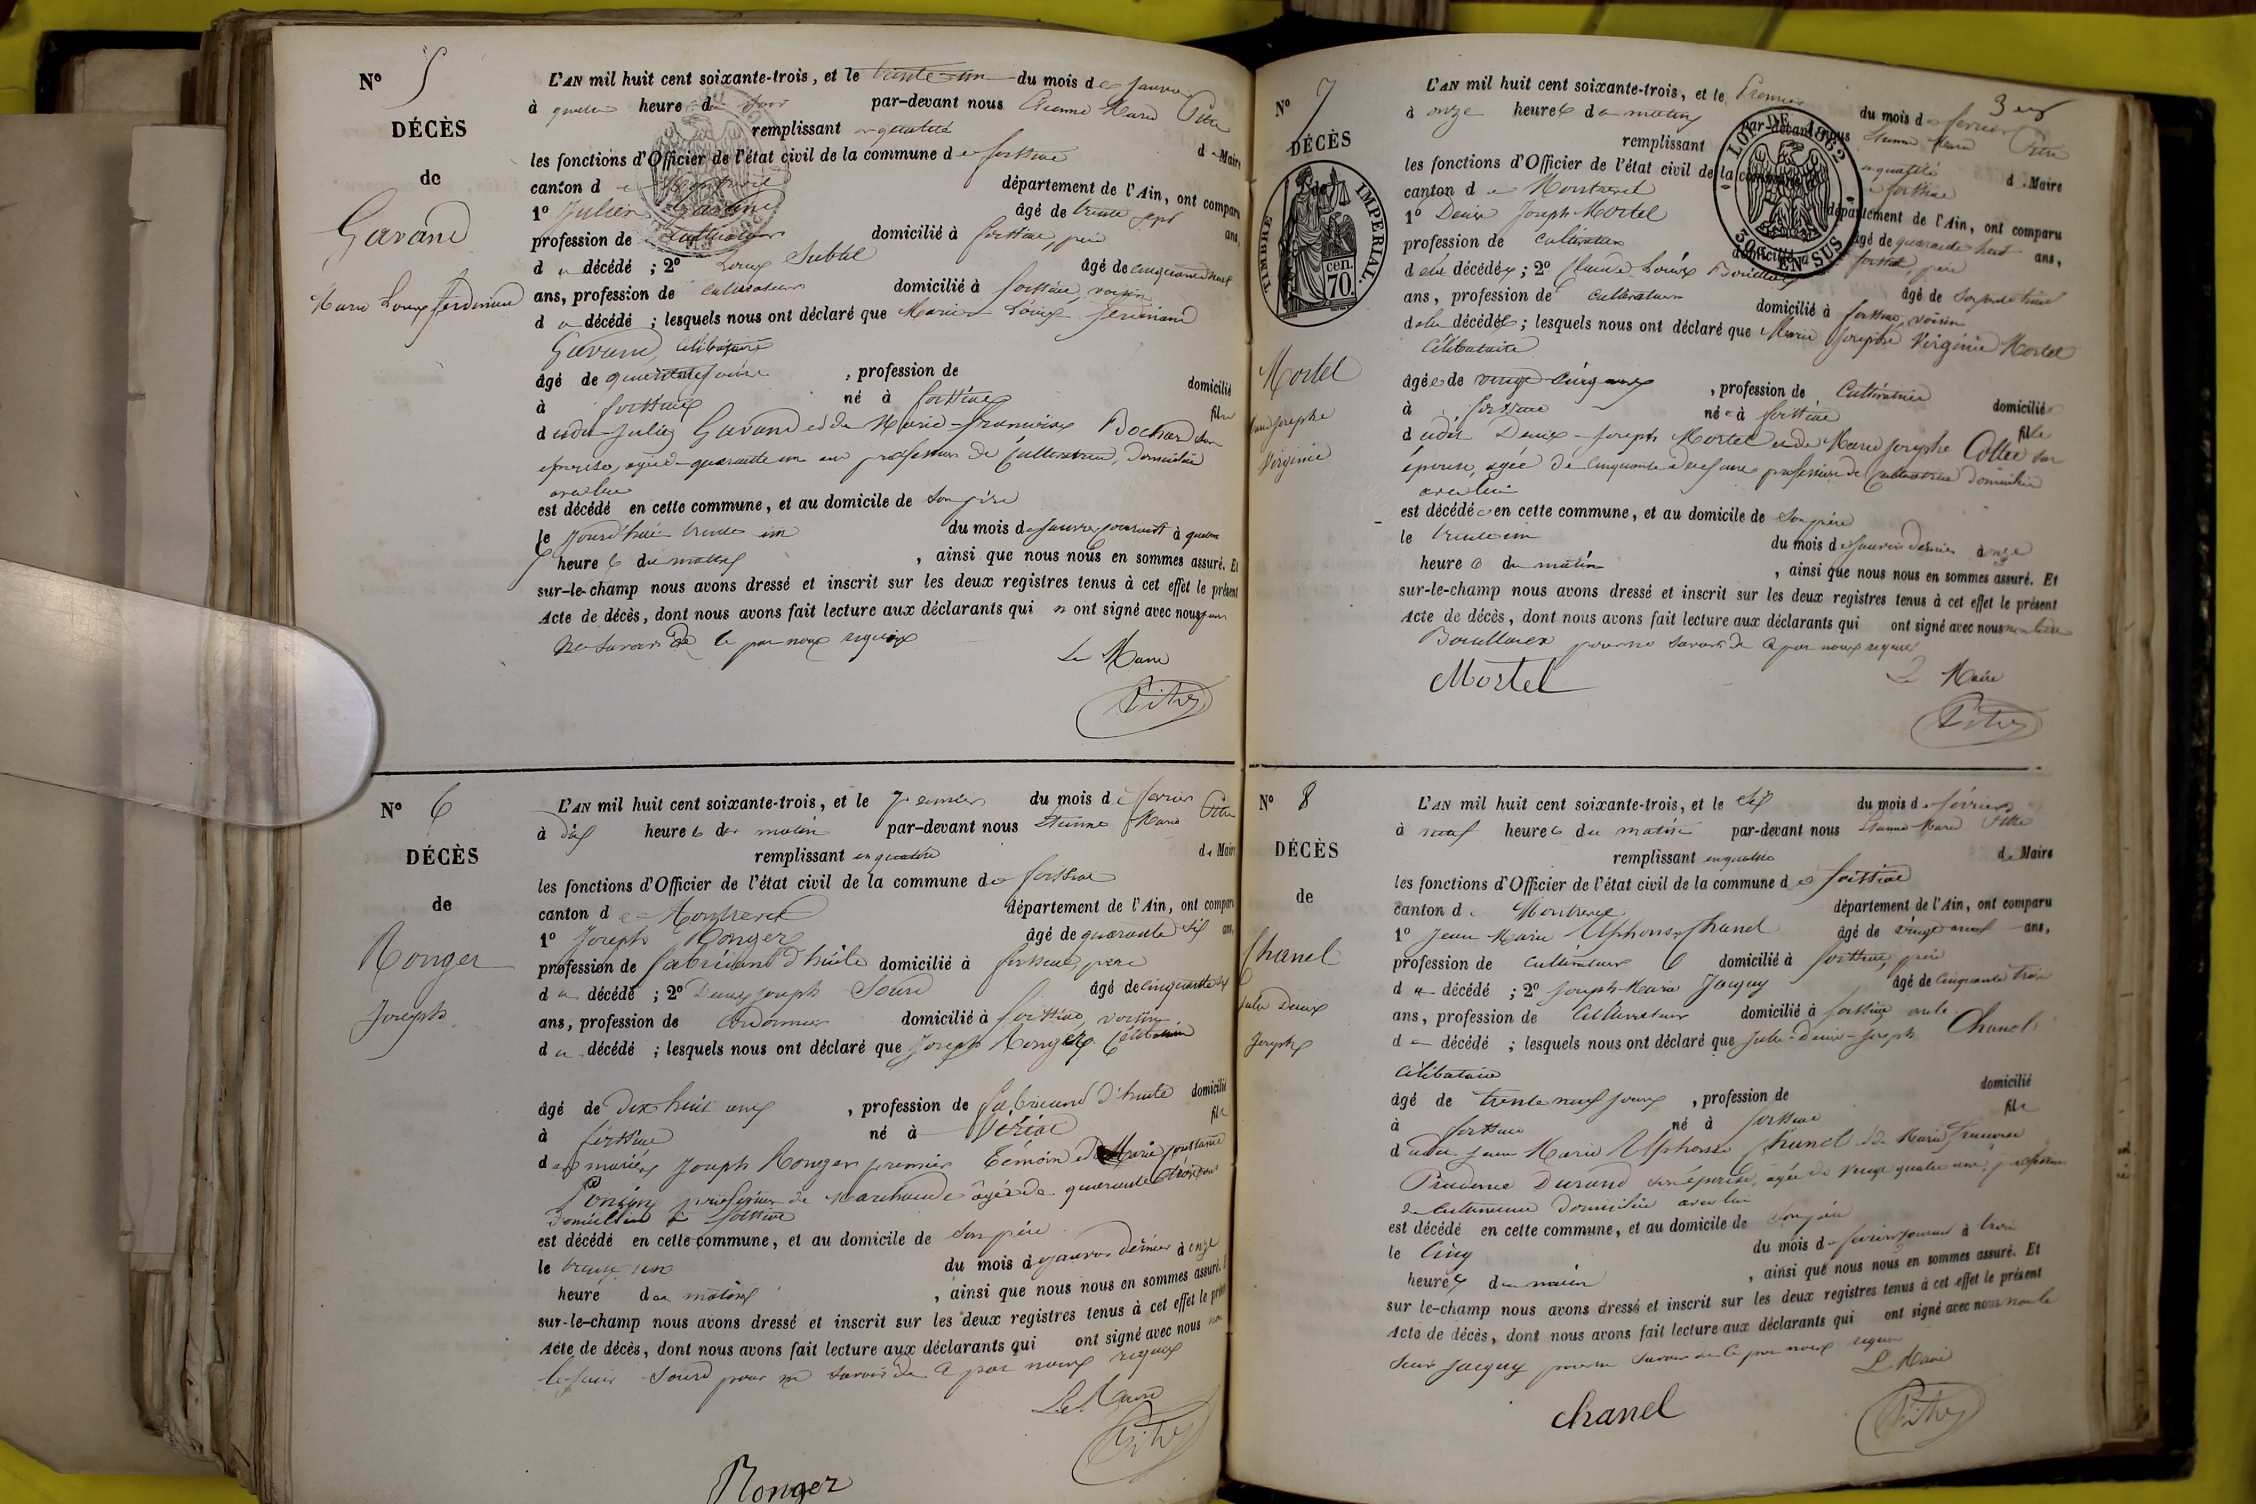 N° 5
DÉCÈS
de
Gavand
Marie Louis Ferdinand
L'AN mil huit cent soixante-trois, et le trente-un du mois de Janvier
à quatre heure du soir par-devant nous Etienne Marie Pitre
remplissant en qualité de Maire
les fonctions d'Officier de l'état civil de la commune de foissiat
canton de Montrevel département de l'Ain, ont comparu
1° Julien Gavand âgé de trente sept ans,
profession de cultivateur domicilié à foissiat, père
du décédé ; 2° Louis Subtil âgé de cinquante neuf
ans, profession de cultivateur domicilié à foissiat, voisin
du décédé ; lesquels nous ont déclaré que Marie Louis ferdinand
Gavand, célibataire
âgé de , profession de domicilié
à foissiat né à foissiat fils
dudit Julien Gavand et de Marie-françoise Bochard son
épouse, agée quarante un ans profession de Cultivatrice, domiciliée
avec lui
est décédé en cette commune, et au domicile de son père
le jourd'hui trente un du mois de Janvier courant à quatre
heures du matin , ainsi que nous nous en sommes assuré. Et
sur-le-champ nous avons dressé et inscrit sur les deux registres tenus à cet effet le présent
Acte de décès, dont nous avons fait lecture aux déclarants qui n ont signé avec nous pour
ne savoir de ce par nous requis
Le Maire
Pitre
N° 6
DÉCÈS
de
Ronger
Joseph
L'AN mil huit cent soixante-trois, et le premier du mois de février
à dix heures du matin par-devant nous Etienne Marie Pitre
remplissant en qualité de Maire
les fonctions d'Officier de l'état civil de la commune de foissiat
canton de Montrevel département de l'Ain, ont comparu
1° Joseph Ronger âgé de quarante six ans,
profession de fabricant d'huile domicilié à foissiat, père
du décédé ; 2° Denis Joseph Sourd âgé de cinquante six
ans, profession de cordonnier domicilié à foissiat, voisin
du décédé ; lesquels nous ont déclaré que Joseph Ronger Célibataire
âgé de dix huit ans , profession de fabricant d'huile domicilié
à foissiat né à fils
des mariés Joseph Ronger premier témoin et de Marie Constance
Poncin profession de marchande âgée de quarante trois ans
domiciliés à foissiat
est décédé en cette commune, et au domicile de son père
le trente un du mois de Janvier dernier à onze
heure du matin , ainsi que nous nous en sommes assuré. Et
sur-le-champ nous avons dressé et inscrit sur les deux registres tenus à cet effet le présent
Acte de décès, dont nous avons fait lecture aux déclarants qui ont signé avec nous non
le sieur Sourd pour ne savoir de ce par nous requis
Le Maire
Pitre
Ronger
3
N° 7
DÉCÈS
de
TIMBRE IMPÉRIAL.
70 cen.
LOI DE 1862
30 C. EN SUS
Mortel
Marie Josephe
Virginie
L'AN mil huit cent soixante-trois, et le Premier du mois de février
à onze heures du matin par-devant nous Etienne Marie Pitre
remplissant en qualité de Maire
les fonctions d'Officier de l'état civil de la commune de foissiat
canton de Montrevel département de l'Ain, ont comparu
1° Denis Joseph Mortel âgé de quarante huit ans,
profession de Cultivateur domicilié à foissiat, père
de la décédée ; 2° Claude Louis Bouilloux âgé de
ans, profession de cultivateur domicilié à foissiat, voisin
de la décédée ; lesquels nous ont déclaré que Marie Josephe Virginie Mortel
Célibataire
âgée de vingt cinq ans , profession de Cultivatrice domiciliée
à foissiat née à foissiat fille
dudit Denis-Joseph Mortel et de Marie Josephe Collet son
épouse, agée de cinquante deux ans profession de Cultivatrice domiciliée
avec lui
est décédée en cette commune, et au domicile de son père
le trente un du mois de Janvier dernier à onze
heures du matin , ainsi que nous nous en sommes assuré. Et
sur-le-champ nous avons dressé et inscrit sur les deux registres tenus à cet effet le présent
Acte de décès, dont nous avons fait lecture aux déclarants qui ont signé avec nous non ledit
Bouilloux pour ne savoir de ce par nous requis
Mortel
Le Maire
Pitre
N° 8
DÉCÈS
de
Chanel
Jules Denis
Joseph
L'AN mil huit cent soixante-trois, et le six du mois de février
à neuf heures du matin par-devant nous Etienne Marie Pitre
remplissant en qualité de Maire
les fonctions d'Officier de l'état civil de la commune de foissiat
canton de Montrevel département de l'Ain, ont comparu
1° Jean Marie Alphonse Chanel âgé de vingt neuf ans,
profession de cultivateur domicilié à foissiat, père
du décédé ; 2° Joseph-Marie Jacquy âgé de cinquante trois
ans, profession de Cultivateur domicilié à foissiat, oncle
du décédé ; lesquels nous ont déclaré que Jules-Denis-Joseph Chanel
célibataire
âgé de trente neuf jours , profession de domicilié
à foissiat né à foissiat fils
dudit Jean Marie Alphonse Chanel et de Marie françoise
Prudence Durand son épouse, agée de vingt quatre ans, profession
de Cultivatrice domiciliée avec lui
est décédé en cette commune, et au domicile de son père
le Cinq du mois de février courant à trois
heures du matin , ainsi que nous nous en sommes assuré. Et
sur le-champ nous avons dressé et inscrit sur les deux registres tenus à cet effet le présent
Acte de décès, dont nous avons fait lecture aux déclarants qui ont signé avec nous non le
sieur Jacquy pour ne savoir de ce par nous requis
Le Maire
Chanel
Pitre